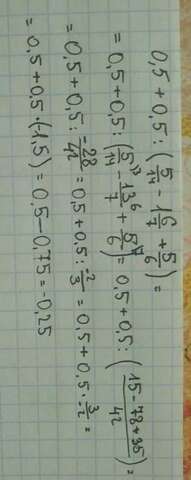 0,5 + 0,5 : (5/14 - 1 6/7 + 5/6) =
= 0,5 + 0,5 : (5/14 - 13/7 + 5/6) = 0,5 + 0,5 : (15 - 78 + 35 / 42) =
= 0,5 + 0,5 : -28/42 = 0,5 + 0,5 : -2/3 = 0,5 + 0,5 · 3/-2 =
= 0,5 + 0,5 · (-1,5) = 0,5 - 0,75 = -0,25